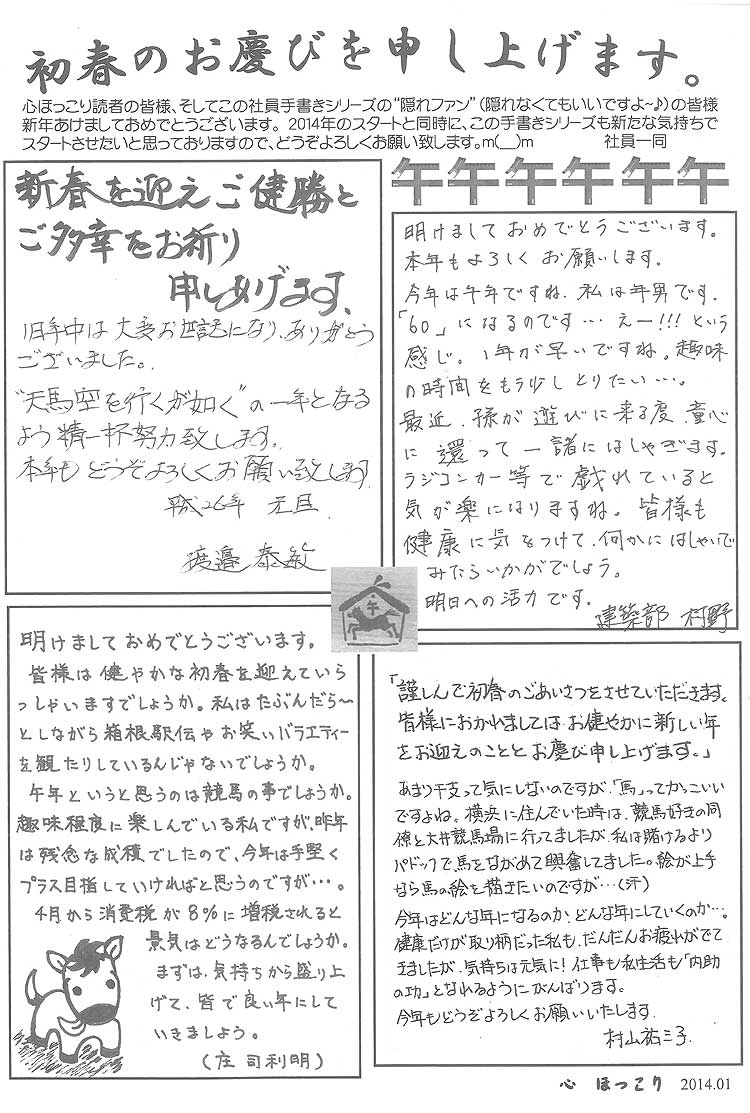 初春のお慶びを申し上げます。
心ほっこり読者の皆様、そしてこの社員手書きシリーズの“隠れファン”（隠れなくてもいいですよ～♪）の皆様
新年あけましておめでとうございます。2014年のスタートと同時に、この手書きシリーズも新たな気持ちで
スタートさせたいと思っておりますので、どうぞよろしくお願い致します。m(__)m　社員一同
新春を迎えご健勝と
ご多幸をお祈り
申しあげます。
旧年中は大変お世話になり、ありがとう
ございました。
“天馬空を行くが如く”の一年となる
よう精一杯努力致します。
本年もどうぞよろしくお願い致します
平成26年　元旦
渡邉 泰敏
午午午午午午
明けましておめでとうございます。
本年もよろしくお願いします。
今年は午年ですね、私は年男です。
「60」になるのです…えー!!!という
感じ。1年が早いですね。趣味
の時間をもう少しとりたい…。
最近、孫が遊びに来る度、童心
に還って一諸にはしゃぎます。
ラジコンカー等で戯れていると
気が楽になりますね。皆様も
健康に気をつけて、何かにはしゃいで
みたらいかがでしょう。
明日への活力です。
建築部 村野
午
明けましておめでとうございます。
皆様は健やかな初春を迎えていら
っしゃいますでしょうか。私はたぶんだら～
としながら箱根駅伝やお笑いバラエティー
を観たりしているんじゃないでしょうか。
午年というと思うのは競馬の事でしょうか。
趣味程度に楽しんでいる私ですが、昨年
は残念な成積でしたので、今年は手堅く
プラス目指していければと思うのですが…。
4月から消費税が8%に増税されると
景気はどうなるんでしょうか。
まずは、気持ちから盛り上
げて、皆で良い年にして
いきましょう。
（庄司利明）
「謹しんで初春のごあいさつをさせていただきます。
皆様におかれましては、お健やかに新しい年
をお迎えのこととお慶び申し上げます。」
あまり干支って気にしないのですが、「馬」ってかっこいい
ですよね。横浜に住んでいた時は、競馬好きの同
僚と大井競馬場に行ってましたが、私は賭けるより
パドックで馬をながめて興奮してました。絵が上手
なら馬の絵を描きたいのですが…（汗）
今年はどんな年になるのか、どんな年にしていくのか…。
健康だけが取り柄だった私も、だんだんお疲れがでて
きましたが、気持ちは元気に！仕事も私生活も「内助
の功」となれるようにがんばります。
今年もどうぞよろしくお願いいたします。
村山祐三子
心 ほっこり 2014.01